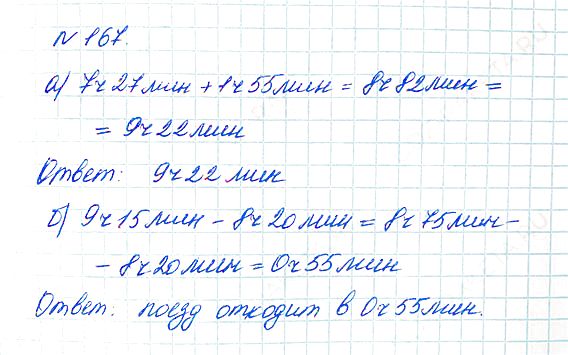 N 167.
а) 7ч 27мин + 1ч 55мин = 8ч 82мин =
= 9ч 22мин
Ответ: 9ч 22 мин
б) 9ч 15мин - 8ч 20мин = 8ч 75мин -
- 8ч 20мин = 0ч 55мин
Ответ: поезд отходит в 0ч 55мин.